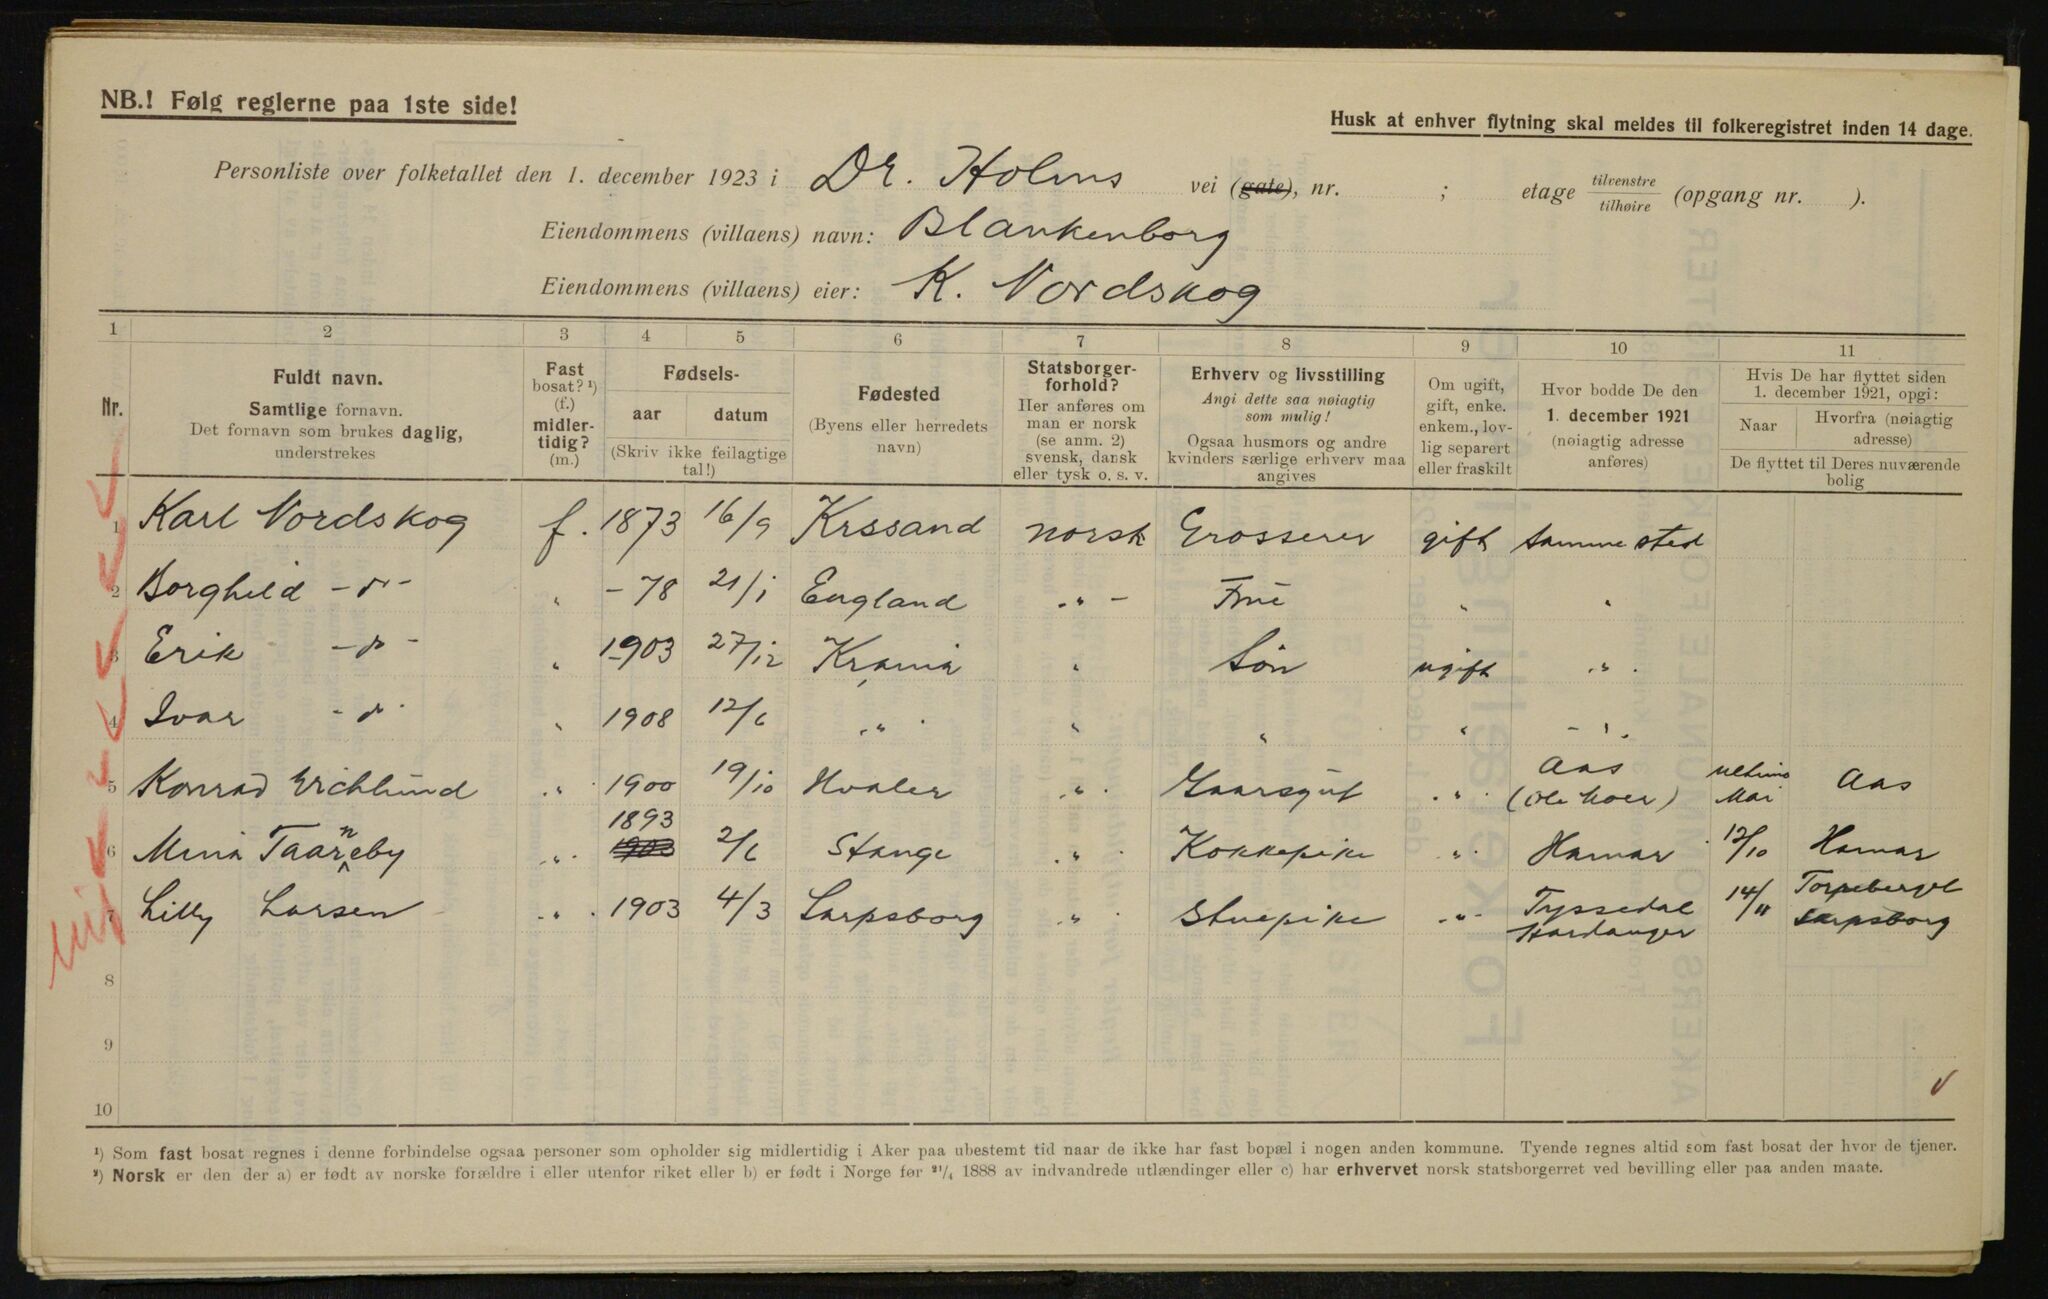 NB.! Følg reglerne paa 1ste side!
Husk at enhver flytning skal meldes til folkeregistret inden 14 dage.
Personliste over folketallet den 1. december 1923 i Dr. Holms vei (gate), nr. ; etage tilvenstre tilhøire (opgang nr. ).
Eiendommens (villaens) navn: Blankenborg
Eiendommens (villaens) eier: K. Nordskog
1 2 3 4 5 6 7 8 9 10 11
Nr.
Fuldt navn.
Samtlige fornavn.
Det fornavn som brukes daglig,
understrekes
Fast
bosat? ¹)
(f.)
midler-
tidig?
(m.)
Fødsels-
aar datum
(Skriv ikke feilagtige
tal!)
Fødested
(Byens eller herredets
navn)
Statsborger-
forhold?
Her anføres om
man er norsk
(se anm. 2)
svensk, dansk
eller tysk o. s. v.
Erhverv og livsstilling
Angi dette saa nøiagtig
som mulig!
Ogsaa husmors og andre
kvinders særlige erhverv maa
angives
Om ugift,
gift, enke.
enkem., lov-
lig separert
eller fraskilt
Hvor bodde De den
1. december 1921
(nøiagtig adresse
anføres)
Hvis De har flyttet siden
1. december 1921, opgi:
Naar Hvorfra (nøiagtig
adresse)
De flyttet til Deres nuværende
bolig
1 Karl Nordskog f. 1873 16/9 Krssand norsk Grosserer gift Samme sted
2 Borghild -d- " -78 21/1 England -"- Frue " "
3 Erik -d- " 1903 27/12 Krania " Søn ugift "
4 Ivar -d- " 1908 12/6 " " " " -"-
5 Konrad Erichlund " 1900 19/10 Hvaler " Gaarsgut " Aas (Ole Moer) ultimo Mai Aas
6 Mina Taarneby " 1893 1903 2/6 Stange " Kokkepike " Hamar 12/10 Hamar
7 Lilly Larsen " 1903 4/3 Sarpsborg " Stuepike " Tyssedal Hardanger 14/11 Sarpsborg
8
9
10
¹) Som fast bosat regnes i denne forbindelse ogsaa personer som opholder sig midlertidig i Aker paa ubestemt tid naar de ikke har fast bopæl i nogen anden kommune. Tyende regnes altid som fast bosat der hvor de tjener.
²) Norsk er den der a) er født av norske forældre i eller utenfor riket eller b) er født i Norge før ²¹/₄ 1888 av indvandrede utlændinger eller c) har erhvervet norsk statsborgerret ved bevilling eller paa anden maate.